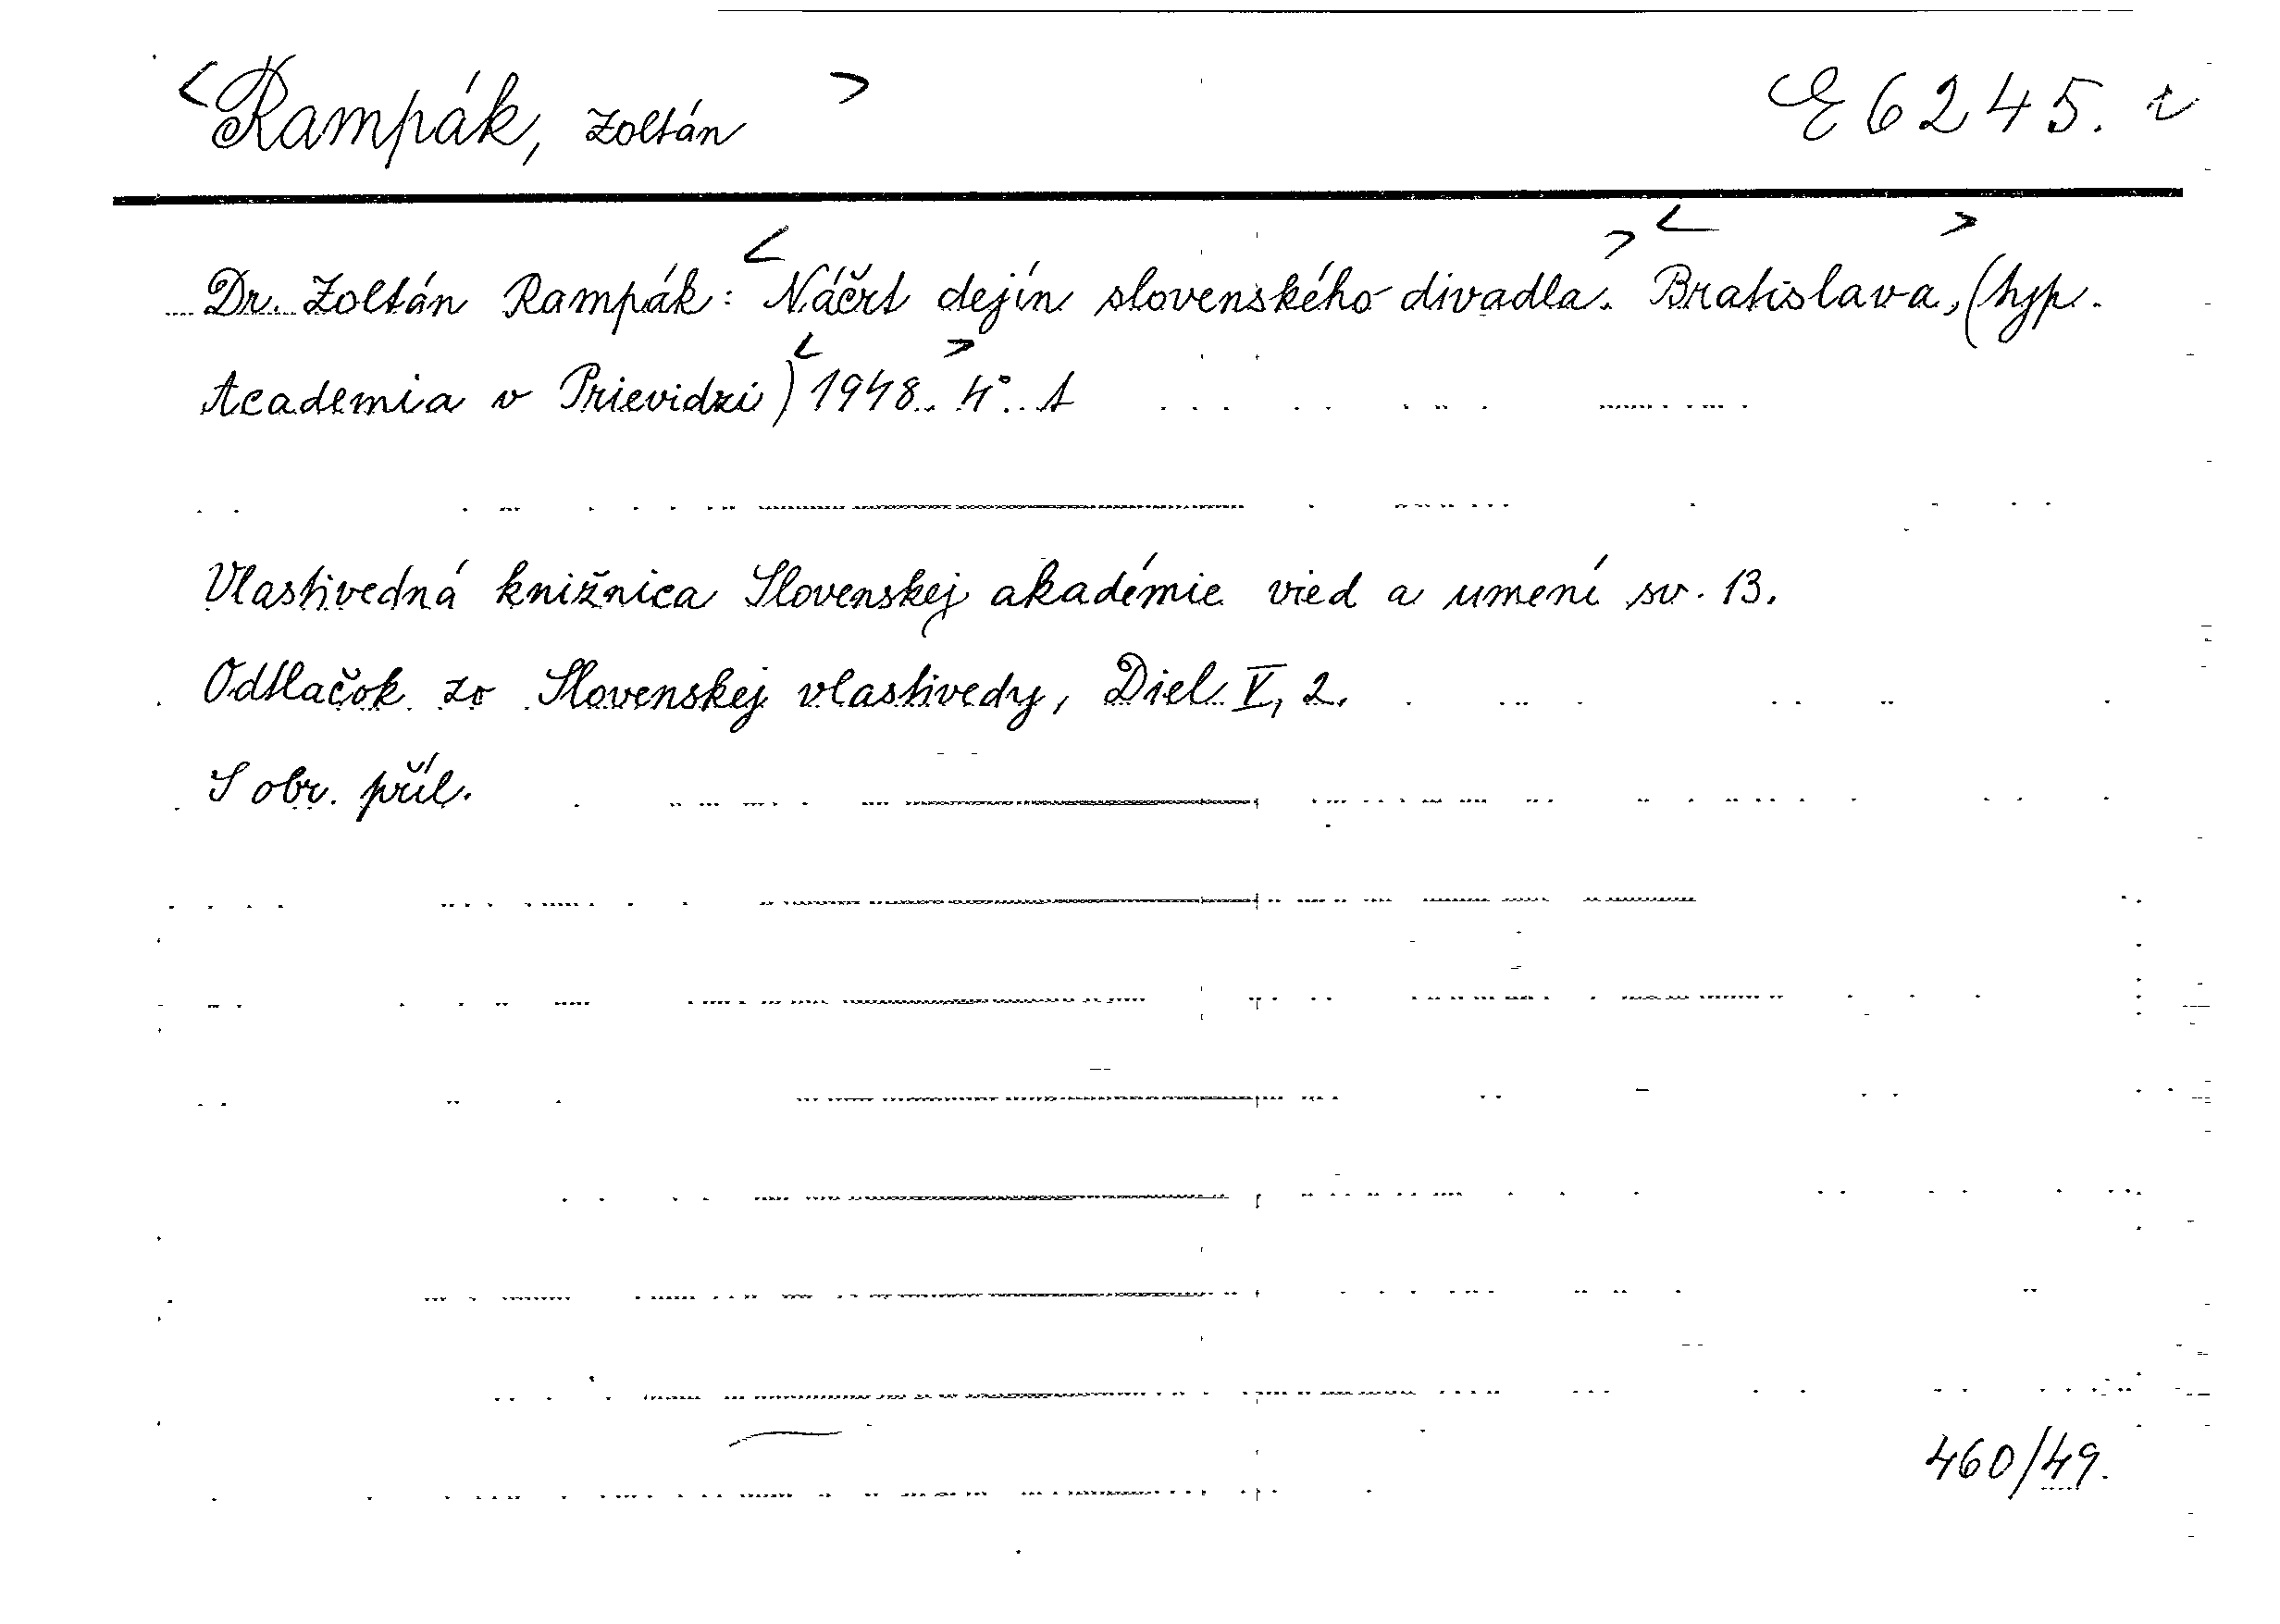 <Rampák, Zoltán> E 6245. r
Dr. Zoltán Rampák: <Náčrt dejín slovenského divadla.> <Bratislava,> (typ.
Academia v Prievidzi) <1948.> 4°. A
Vlastivedná knižnica Slovenskej akadémie vied a umení sv. 13.
Odtlačok zo Slovenskej vlastivedy, Diel V, 2.
S obr. příl.
460/49.